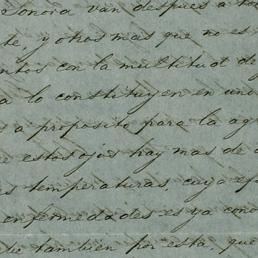 Sonora van despues a
te, y otros mas que no es
ntos con la multitud de
a lo constituyen en un
s a proposito para la ag
e estas ojis hay mas de
s temperaturas, cuya ef
enfermedades es ya cono
de tambien por esta, que